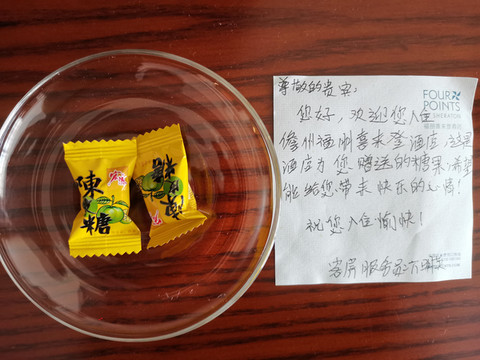 陳
糖
尊敬的贵宾:
FOUR
POINTS
BY SHERATON
您好,欢迎您入住
儋州福朋喜来登酒店,这是
酒店为您赠送的糖果,希望
能给您带来快乐的心情!
祝您入住愉快!
客房服务员: